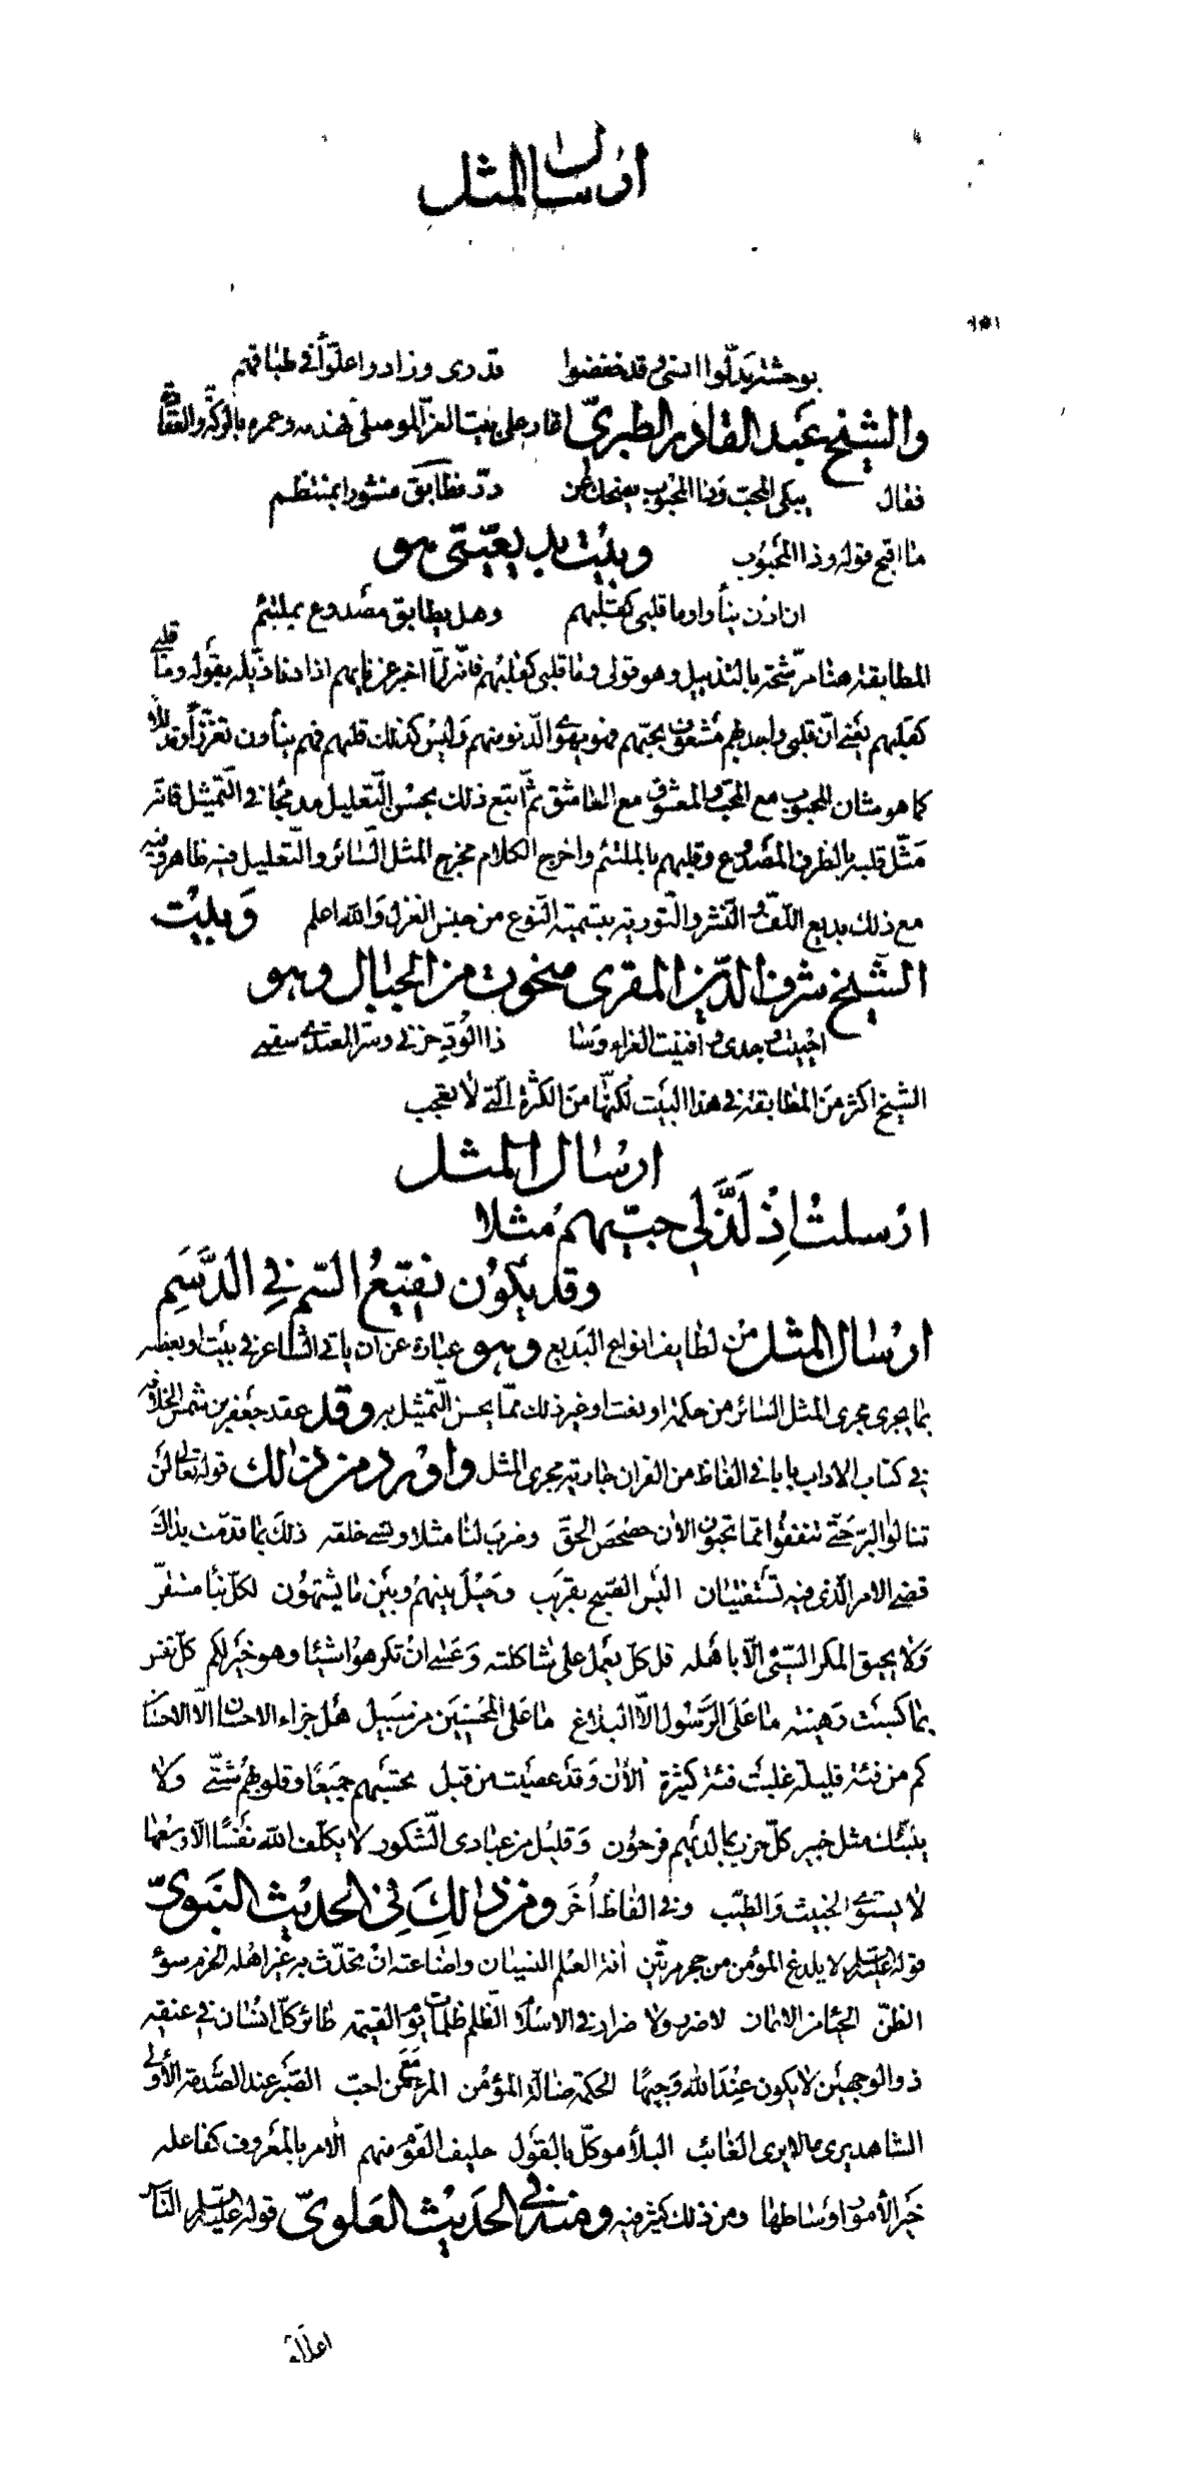 ارسال المثل
١٥١
بوحشتي بدلوا انسي وقد خفضوا قدري وزادوا علوا في طباقهم
والشيخ عبد القادر الطبري اغار على بيت العز الموصلي فهدمه وعمره بالركة والعقادة
فقال يبكي المحب وذا المحبوب يضحك عن درّ فطابق منثورا بمنتظم
ما اقبح قوله وذا المحبوب وبيت بديعيتي هو
ان ادن ينأوا وما قلبي كقلبهم وهل يطابق مصدوع بملتئم
المطابقة هنا مرشحة بالتذييل وهو قولي وما قلبي كقلبهم فانه لما اخبر عن نأيهم اذا دنا ذيله بقوله وما قلبي
كقلبهم يعني انّ قلبي واجد بهم مشغوف بحبّهم فهو يهوى الدّنو منهم وليس كذلك قلبهم فهم ينأون تعززا وتدللا
كما هو شان المحبوب مع المحب والمعشوق مع العاشق ثمّ اتبع ذلك بحسن التّعليل مدمجا في التّمثيل فانه
مثّل قلبه بالطرف المصدوع وقلبهم بالملتئم واخرج الكلام مخرج المثل السّائر والتّعليل فيه ظاهر وفيه
مع ذلك بديع اللّف والنّشر والتّورية بتسمية النّوع من جنس الغزل والله اعلم وبيت
الشيخ شرف الدين المقري منحوت من الجبال وهو
احييت وجدي وافنيت العزاء وسا ذا الود حزني وسر العتدى سقمي
الشيخ اكثر من المطابقة في هذا البيت لكنّها من الكثرة الّتي لا تعجب
ارسال المثل
ارسلت اذ لذّ لي حبّيهم مثلا
وقد يكون نقيع السّم في الدّسم
ارسال المثل من لطايف انواع البديع وهو عبارة عن ان ياتي الشاعر في بيت او بعضه
بما يجري مجرى المثل السائر من حكمة او نعت او غير ذلك ممّا يحسن التّمثيل به وقد عقد جعفر بن شمس الخلافة
في كتاب الاداب بابا في الفاظ من القران جارية مجرى المثل واورد من ذلك قوله تعالى لن
تنالوا البرّ حتّى تنفقوا ممّا تحبون الان حصحص الحقّ وضرب لنا مثلا ونسي خلقه ذلك بما قدّمت يداك
قضي الامر الّذي فيه تستفتيان اليس الصّبح بقريب وحيل بينهم وبين ما يشتهون لكلّ نبأ مستقرّ
ولا يحيق المكر السّيّئ الّا باهله قل كلّ يعمل على شاكلته وعسى ان تكرهوا شيئا وهو خير لكم كلّ نفس
بما كسبت رهينة ما على الرّسول الّا البلاغ ما على المحسنين من سبيل هل جزاء الاحسان الّا الاحسان
كم من فئة قليلة غلبت فئة كثيرة آلآن وقد عصيت من قبل تحسبهم جميعًا وقلوبهم شتّى ولا
ينبّئك مثل خبير كلّ حزب بما لديهم فرحون وقليل من عبادي الشّكور لا يكلّف الله نفسًا الّا وسعها
لا يستوي الخبيث والطيّب وفي الفاظ أخر ومن ذلك في الحديث النّبويّ
قوله عليه السلام لا يلدغ المؤمن من جحر مرتين آفة العلم النسيان واضاعته ان تحدّث به غير اهله الحزم سوء
الظنّ الحياء من الايمان لا ضرر ولا ضرار في الاسلام الظّلم ظلمات يوم القيمة طائر كلّ انسان في عنقه
ذو الوجهين لا يكون عند الله وجيها الحكمة ضالّة المؤمن المرء مع من احبّ الصّبر عند الصّدمة الأولى
الشاهد يرى ما لا يرى الغائب البلاء موكّل بالقول حليف القوم منهم الامر بالمعروف كفاعله
خير الأمور اوساطها ومن ذلك كثير فيه ومنه في الحديث العلويّ قوله عليه السلام الناس
اعداء